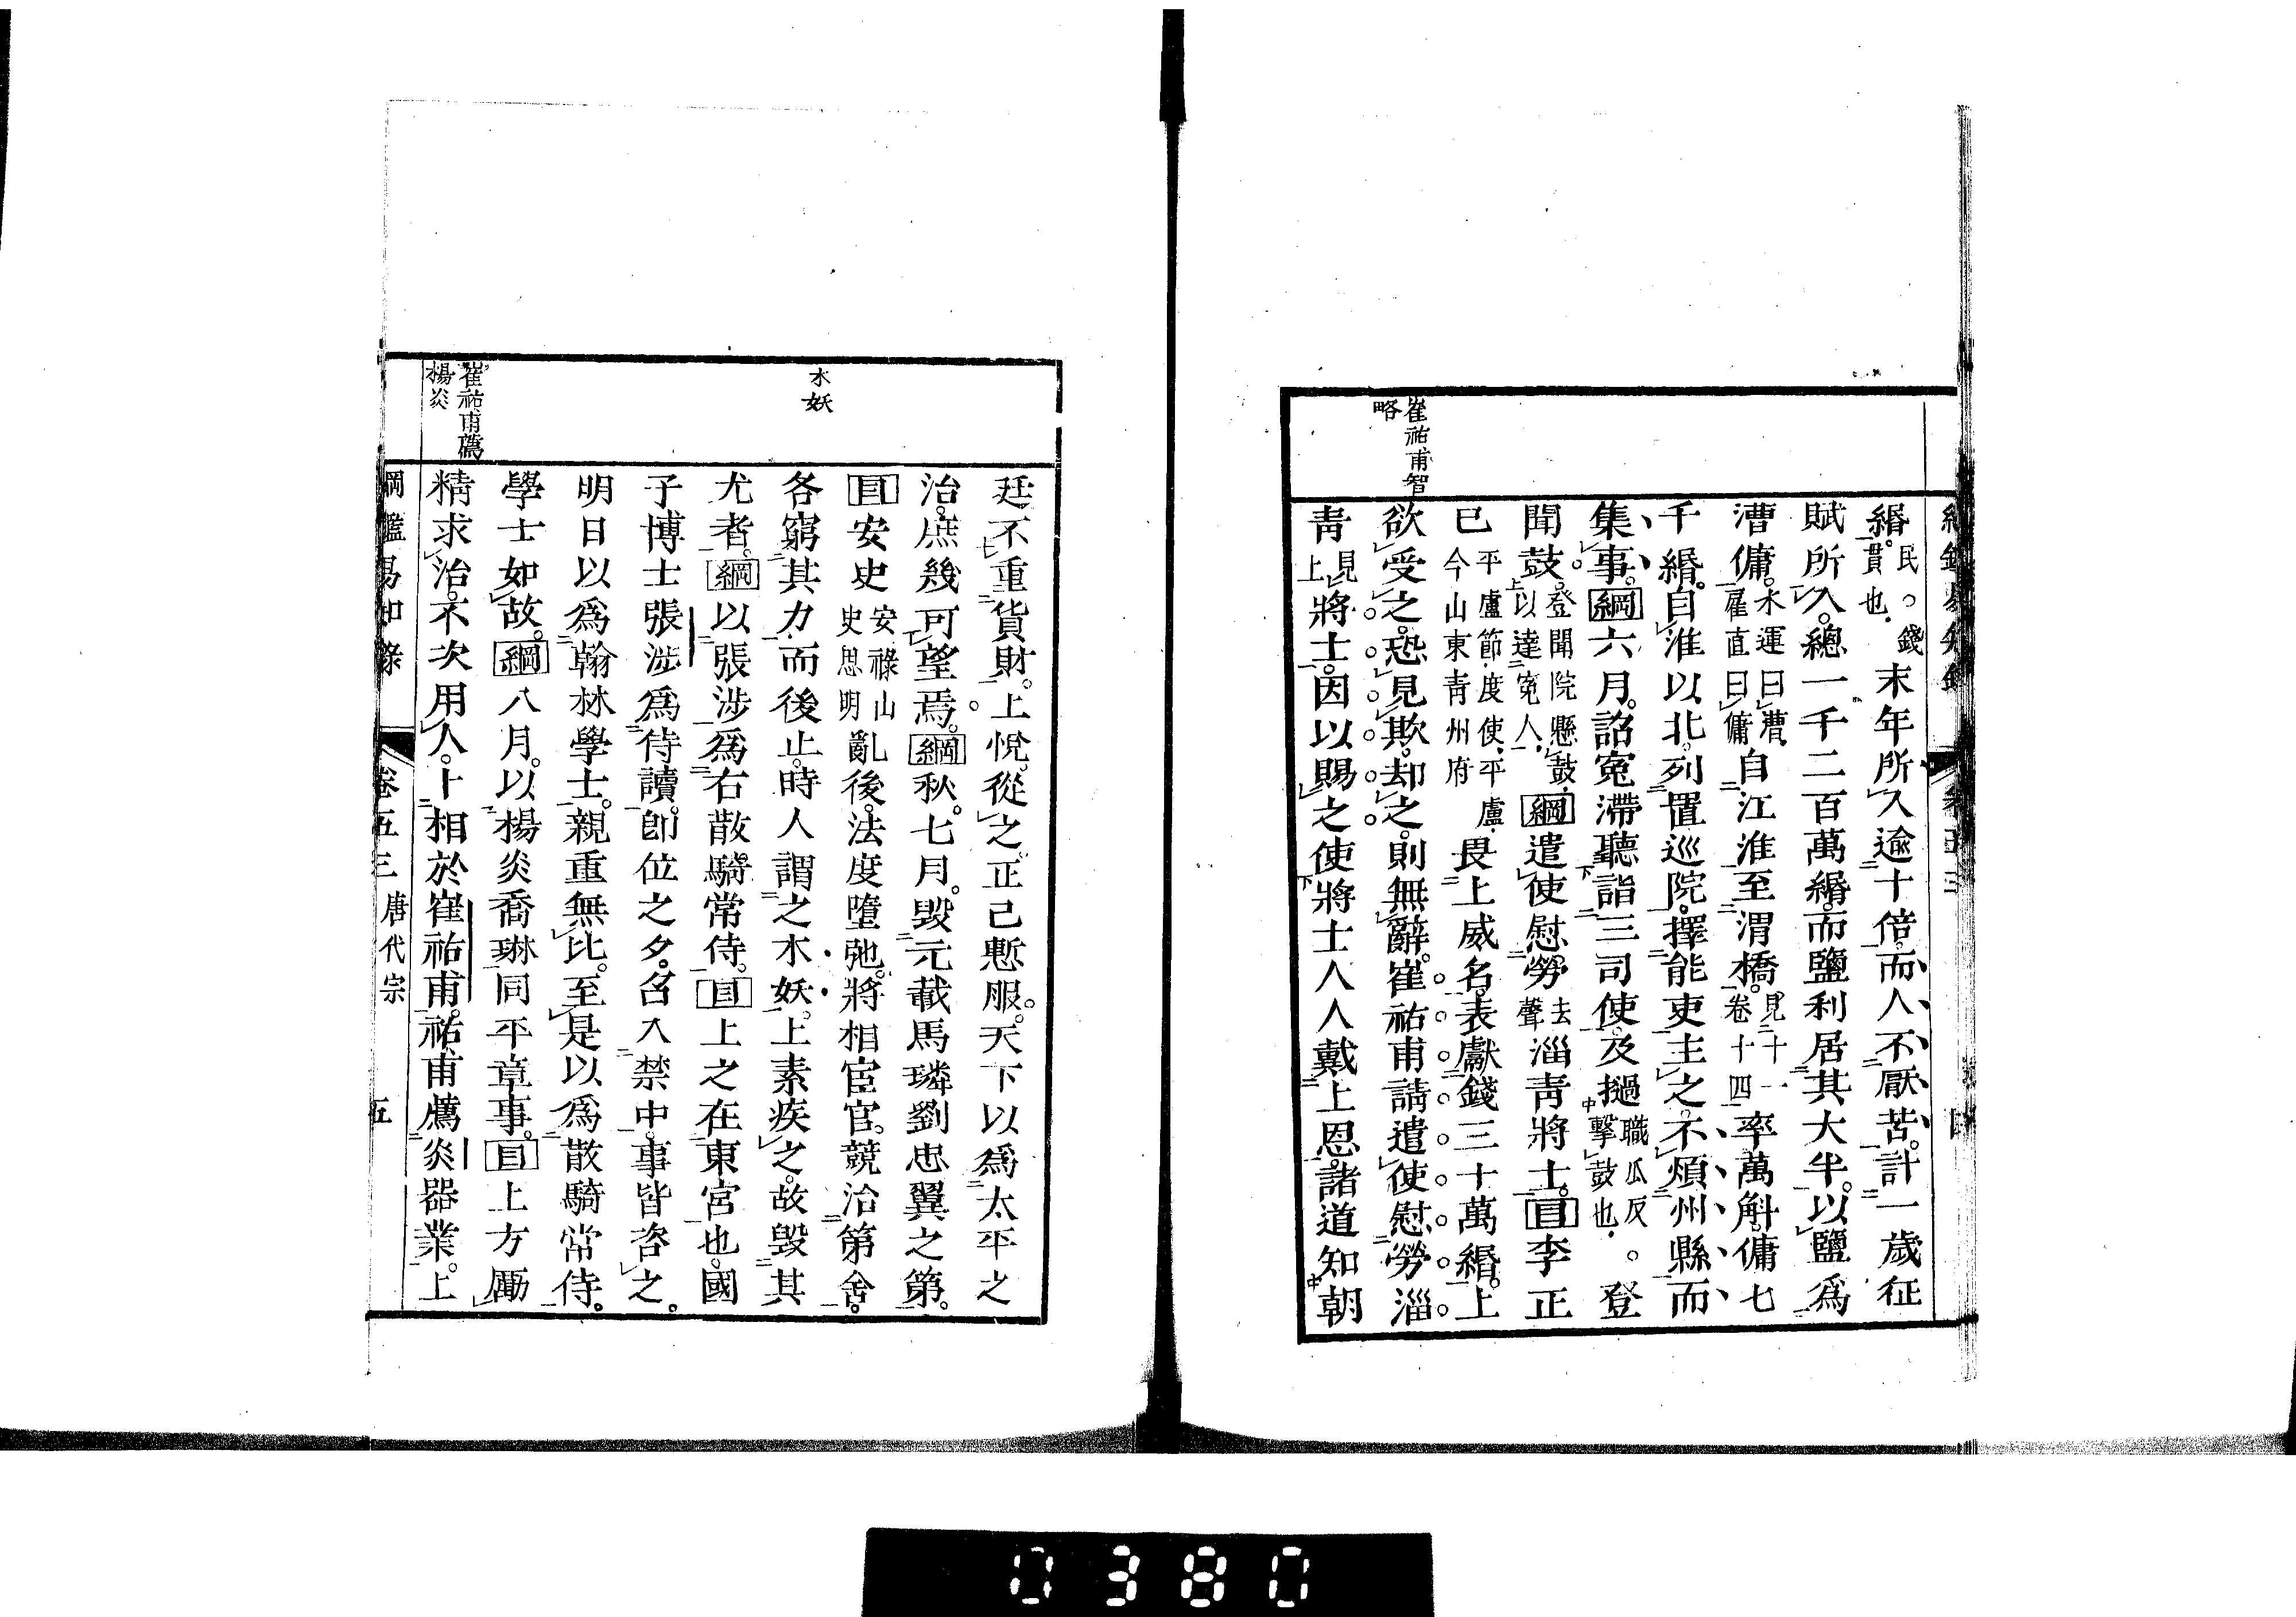 崔祐甫智
略
緡民。錢貫也末年所入逾十倍而人不厭苦計一歲征
賦所入總一千二百萬緡而鹽利居其大半以鹽爲
漕傭水運曰漕雇直曰傭自江淮至渭橋見二十一卷十四率萬斛傭七
千緡自淮以北列置巡院擇能吏主之不煩州縣而
集事綱六月詔冤滯聽詣三司使及撾職瓜反。擊鼓也登
聞鼓登聞院懸鼓以達冤人綱遣使慰勞去聲淄靑將士目李正
已平盧節度使平盧今山東靑州府畏上威名表獻錢三十萬緡上
欲受之恐見欺却之則無辭崔祐甫請遣使慰勞淄
靑見上將士因以賜之使將士人人戴上恩諸道知朝
水妖
崔祐甫薦
楊炎
廷不重貨財上悅從之正己慙服天下以爲太平之
治庶幾可望焉綱秋七月毀元載馬璘劉忠翼之第
目安史安祿山史思明亂後法度墮弛將相宦官競治第舍
各窮其力而後止時人謂之木妖上素疾之故毀其
尤者綱以張涉爲右散騎常侍目上之在東宮也國
子博士張涉爲侍讀卽位之夕召入禁中事皆咨之
明日以爲翰林學士親重無比至是以爲散騎常侍
學士如故綱八月以楊炎喬琳同平章事目上方厲
精求治不次用人卜相於崔祐甫祐甫薦炎器業上
綱鑑易知錄 卷五三 唐代宗 五
0380